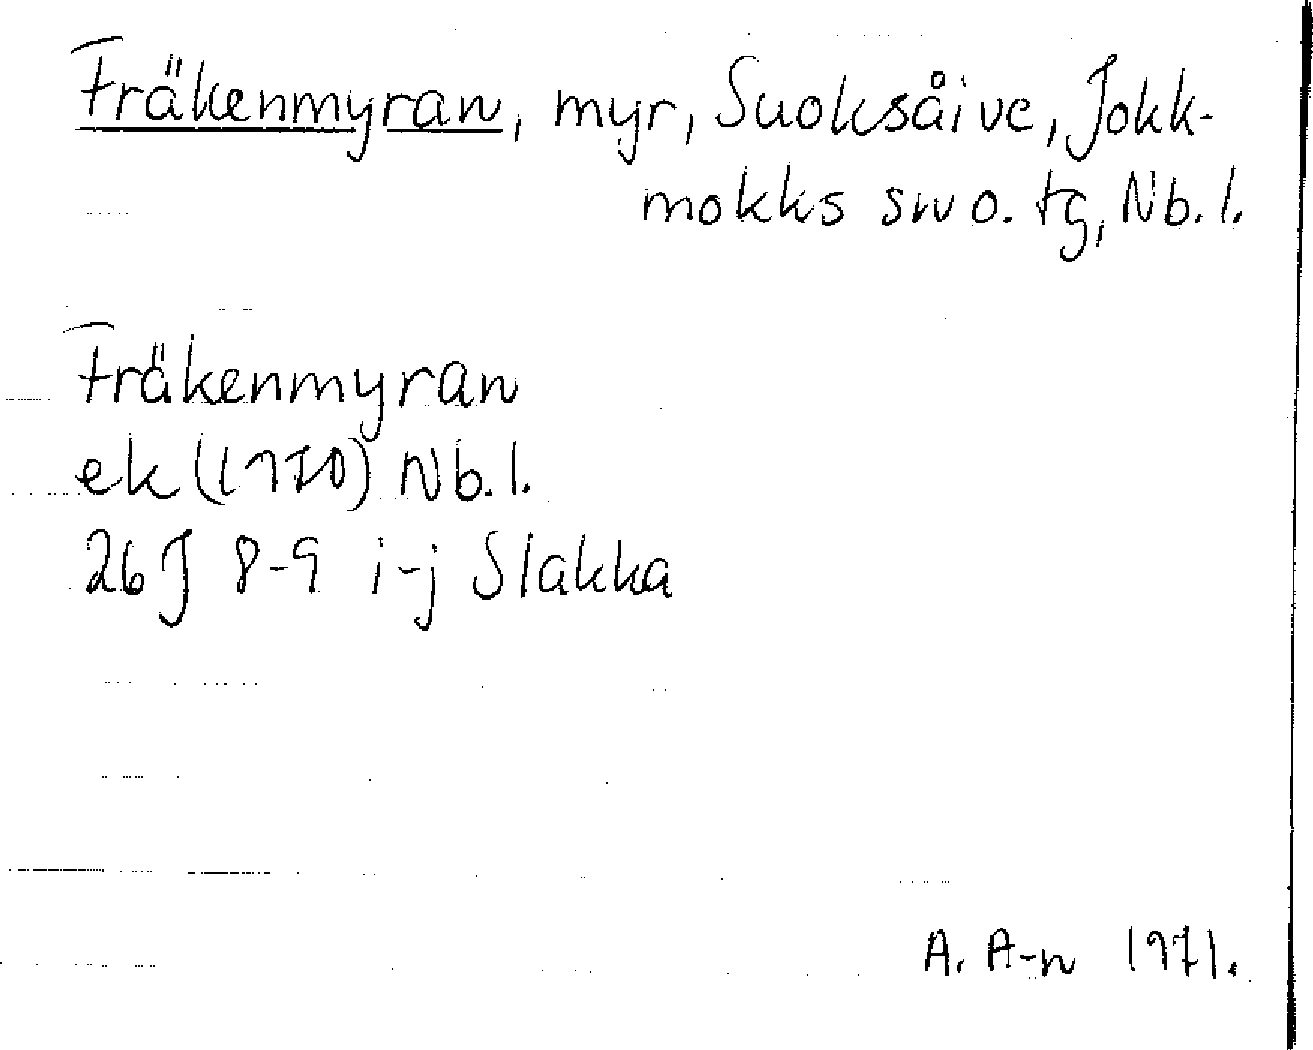 Fräkenmyran, myr, Suoksåive, Jokk-
mokks sn o. tg, Nb. l.
Fräkenmyran
ek (1970) Nb. l.
26J 8-9 i-j Slakka
A. A-n 1971.